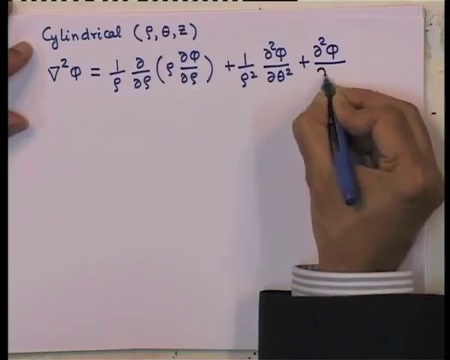 Cylindrical (ρ, θ, Z)
∇²φ = 1/ρ ∂/∂ρ (ρ ∂φ/∂ρ) + 1/ρ² ∂²φ/∂θ² + ∂²φ/∂